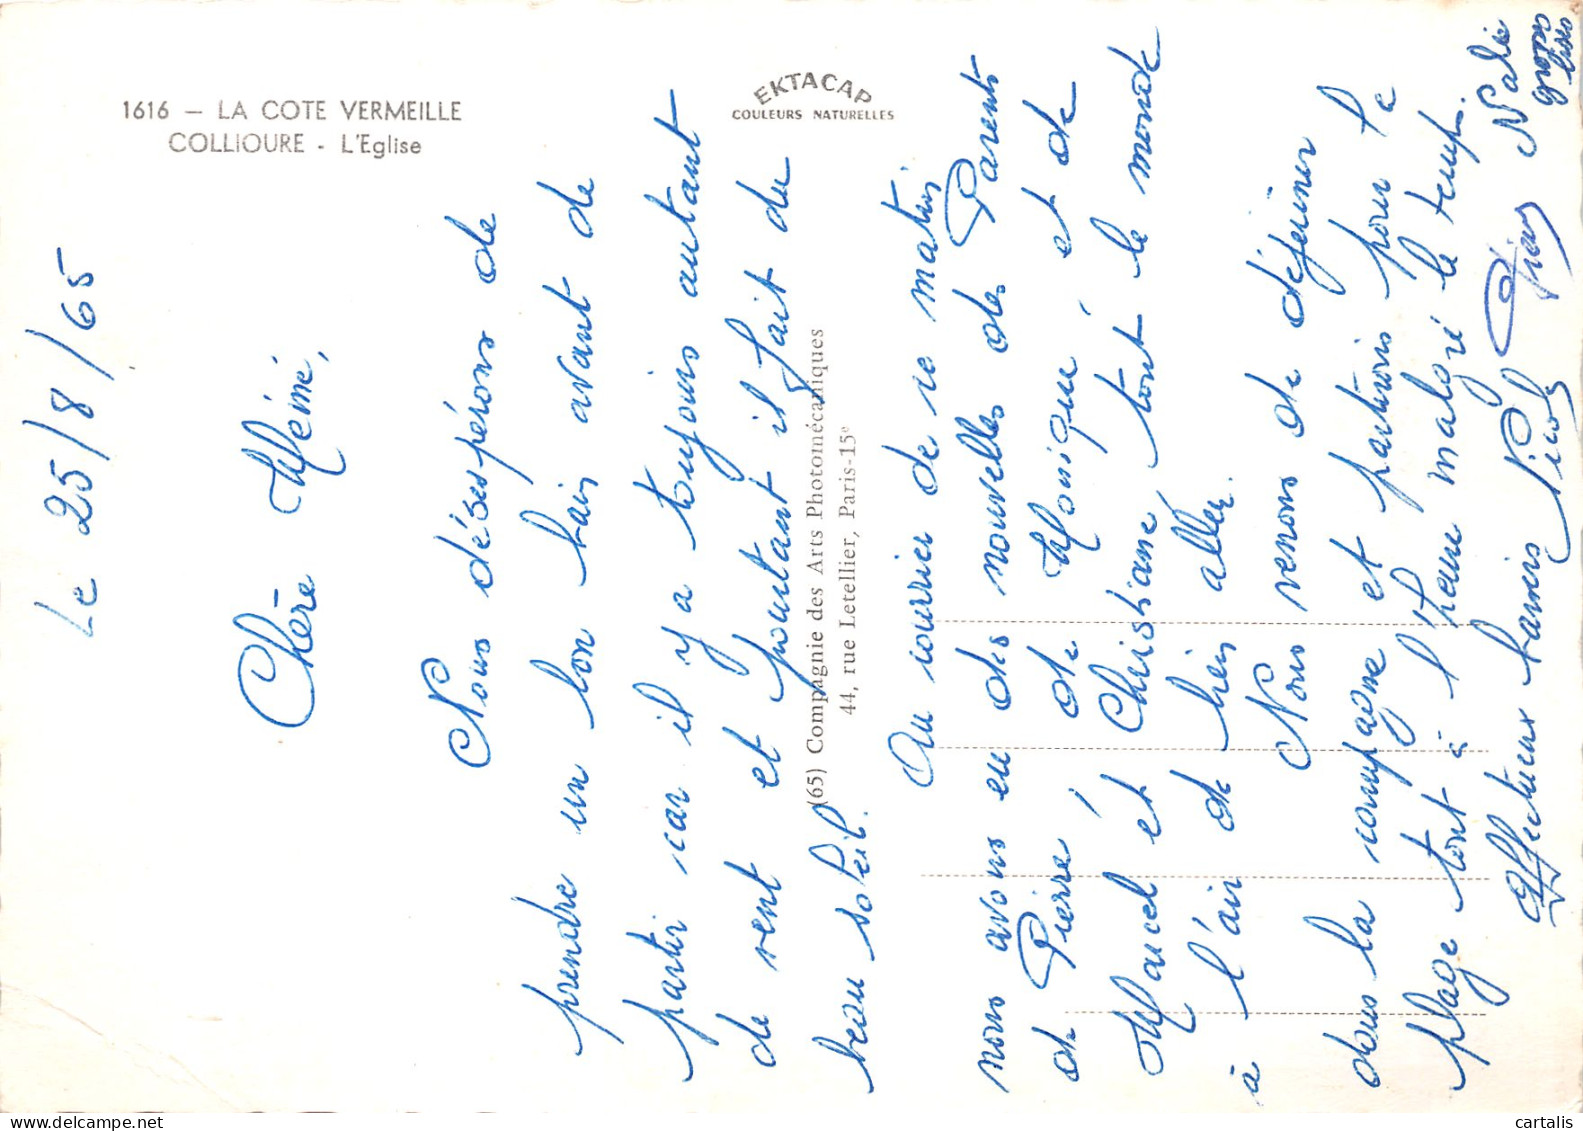 1616 – LA COTE VERMEILLE
COLLIOURE - L'Eglise
EKTACAP
COULEURS NATURELLES
(65) Compagnie des Arts Photomécaniques
44, rue Letellier, Paris-15e
Le 25/8/65
Chère Mémé,
Nous désespérons de
prendre un bon bain avant de
partir car il y a toujours autant
de vent et pourtant il fait du
beau soleil.
Au courrier de ce matin
nous avons eu des nouvelles des Parents
de Pierre, de Monique et de
Marcel et Christiane, tout le monde
à l'air de bien aller.
Nous venons de déjeuner
dans la campagne et partirons pour la
plage tout à l'heure malgré le temps.
Affectueux baisers Nicole
gros
bisous
cartalis